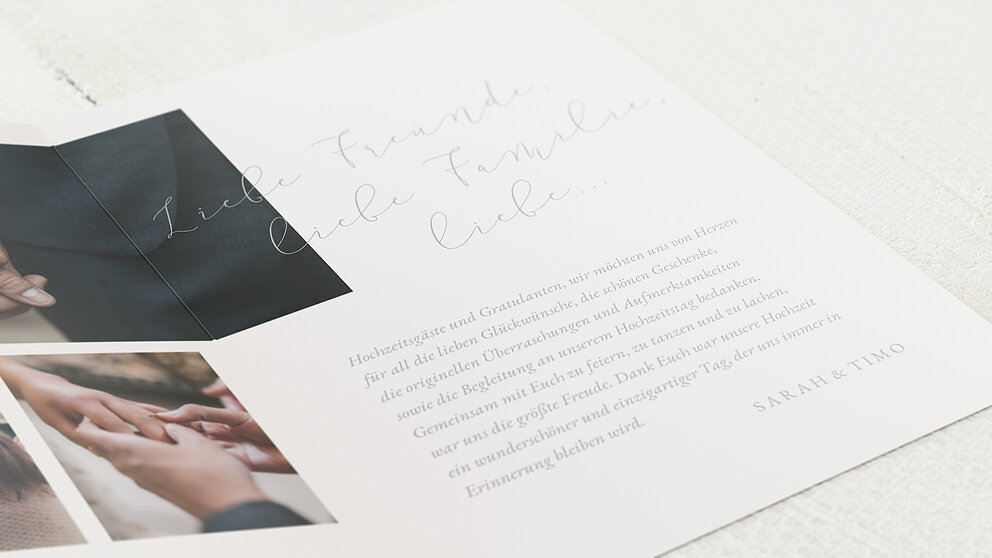 Liebe Freunde,
liebe Familie,
liebe...
Hochzeitsgäste und Gratulanten, wir möchten uns von Herzen
für all die lieben Glückwünsche, die schönen Geschenke,
die originellen Überraschungen und Aufmerksamkeiten
sowie die Begleitung an unserem Hochzeitstag bedanken.
Gemeinsam mit Euch zu feiern, zu tanzen und zu lachen,
war uns die größte Freude. Dank Euch war unsere Hochzeit
ein wunderschöner und einzigartiger Tag, der uns immer in
Erinnerung bleiben wird.
SARAH & TIMO